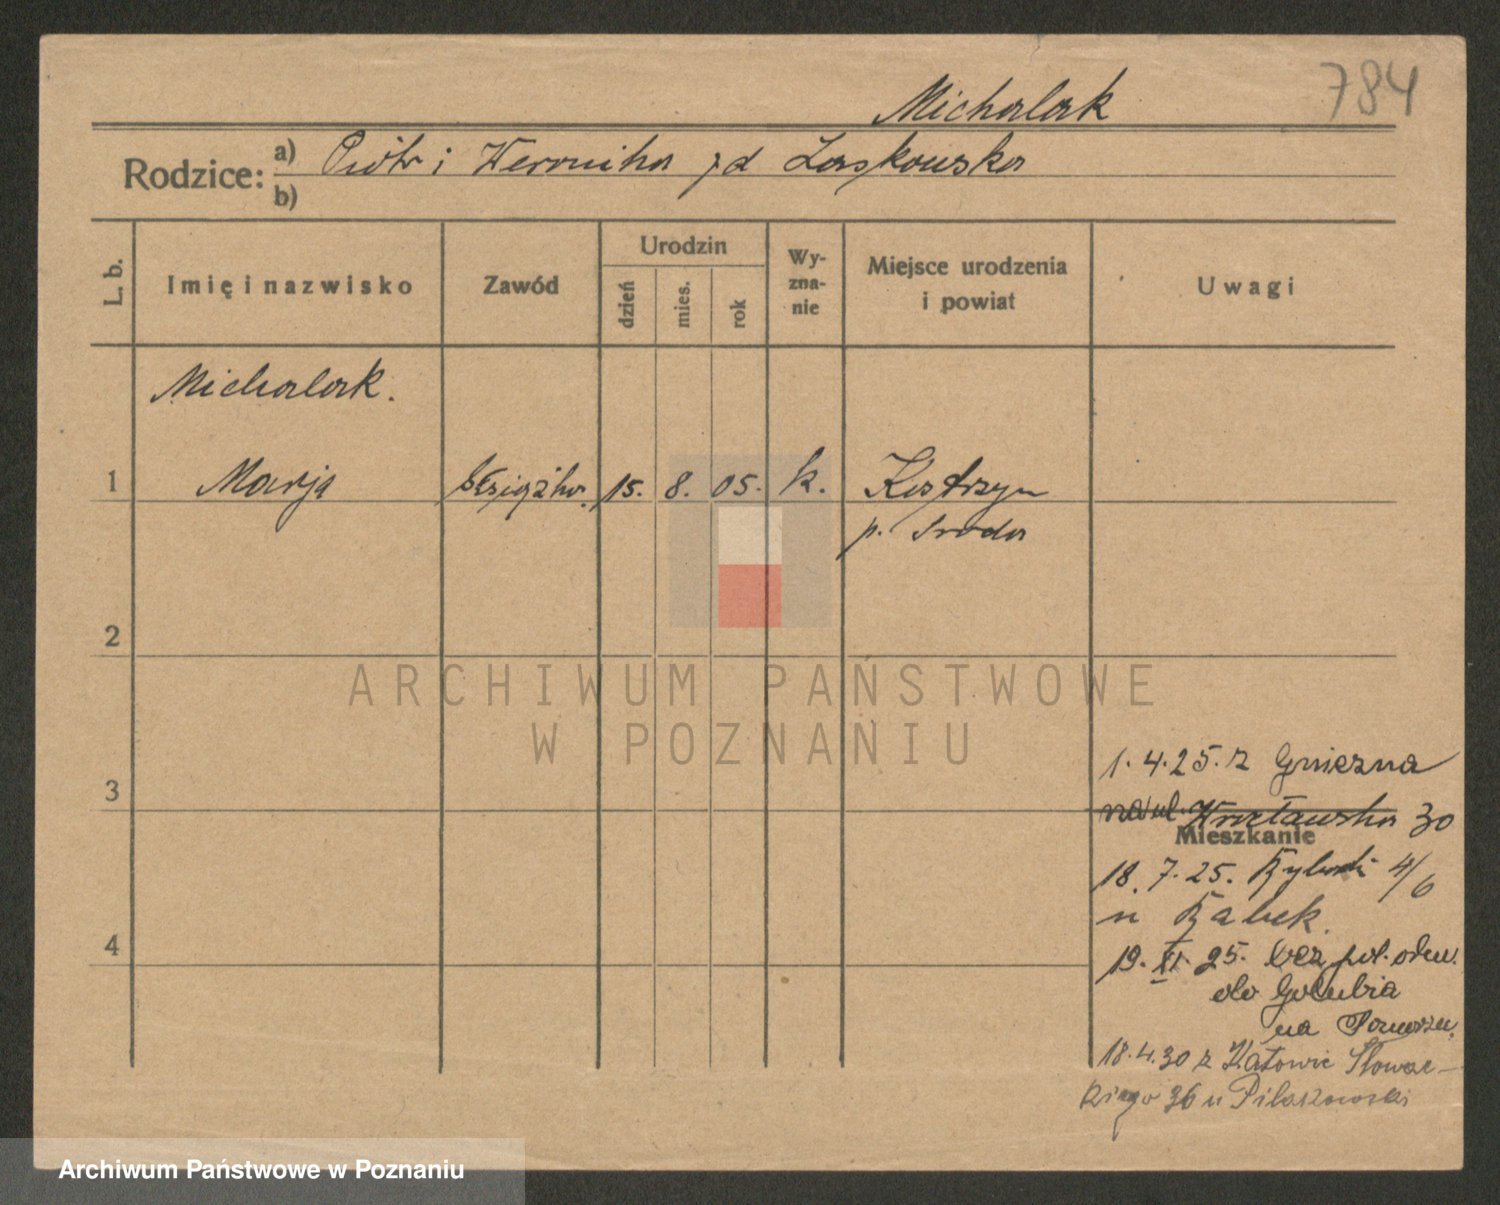 784
Michalak
Rodzice: a) Piotr i Weronika zd Laskowska
b)
L. b.
Imię i nazwisko
Zawód
Urodzin
dzień
mies.
rok
Wy-
zna-
nie
Miejsce urodzenia
i powiat
Uwagi
Michalak.
1 Marja służąca. 15. 8. 05. k. Kostrzyn
p. Środa
2
3
4
1. 4. 25. z Gniezna
na ul. Wrocławska 30
Mieszkanie
18. 7. 25. Rybaki 4/6
u Rabek.
19. XI. 25. bez pol. odm.
do Golubia
na Pomorzu.
18. 4. 30 z Katowic Słowac-
kiego 36 u Pilaskowski
ARCHIWUM PAŃSTWOWE
W POZNANIU
Archiwum Państwowe w Poznaniu